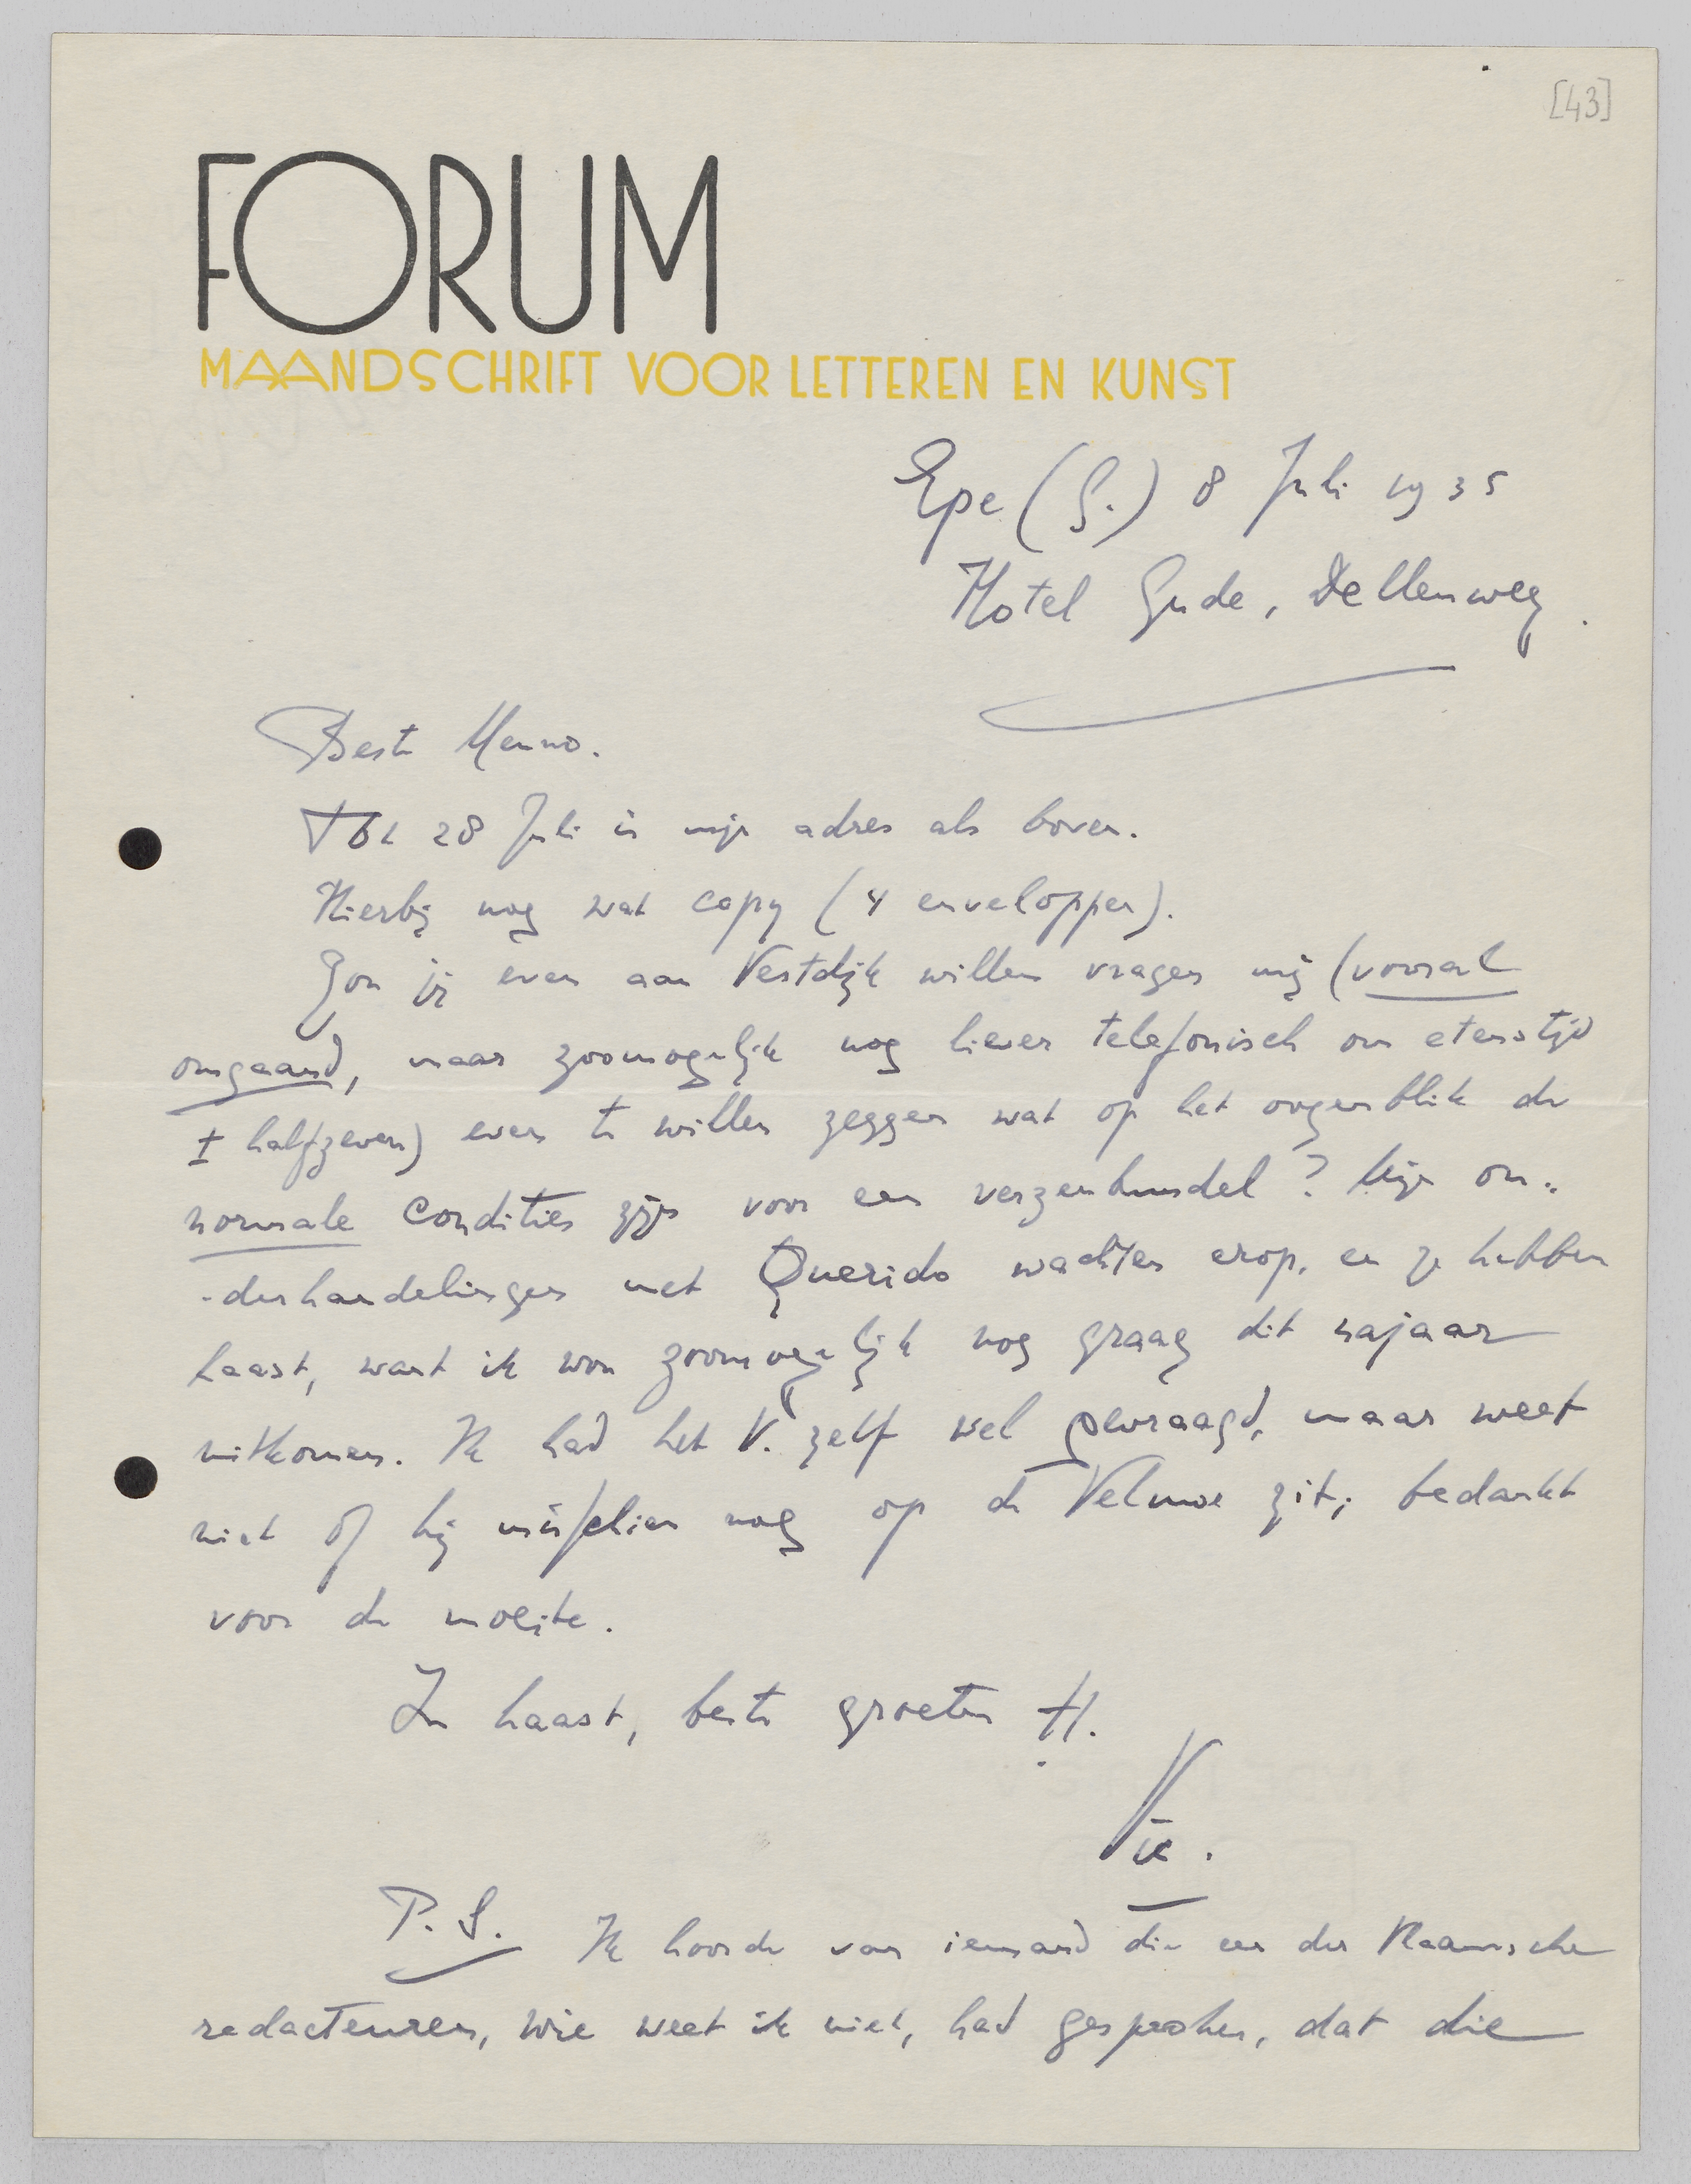 [43]
FORUM
MAANDSCHRIFT VOOR LETTEREN EN KUNST
Epe (G.) 8 Juli 1935
Hotel Gude, Dellenweg.
Beste Menno.
Tot 28 Juli is mijn adres als boven.
Hierbij nog wat copy (4 enveloppen).
Zou jij even aan Vestdijk willen vragen mij (vooral
omgaand, maar zoomogelijk nog liever telefonisch om etenstijd
± halfzeven) even te willen zeggen wat op het oogenblik de
normale condities zijn voor een verzenbundel? Mijn on-
-derhandelingen met Querido wachten erop, en ze hebben
haast, want ik wou zoomogelijk nog graag dit najaar
uitkomen. Ik had het V. zelf wel gevraagd, maar weet
niet of hij misschien nog op de Veluwe zit; bedankt
voor de moeite.
In haast, beste groeten tt.
Vic.
P.S. Ik hoorde van iemand die een der Vlaamsche
redacteuren, wie weet ik niet, had gesproken, dat die